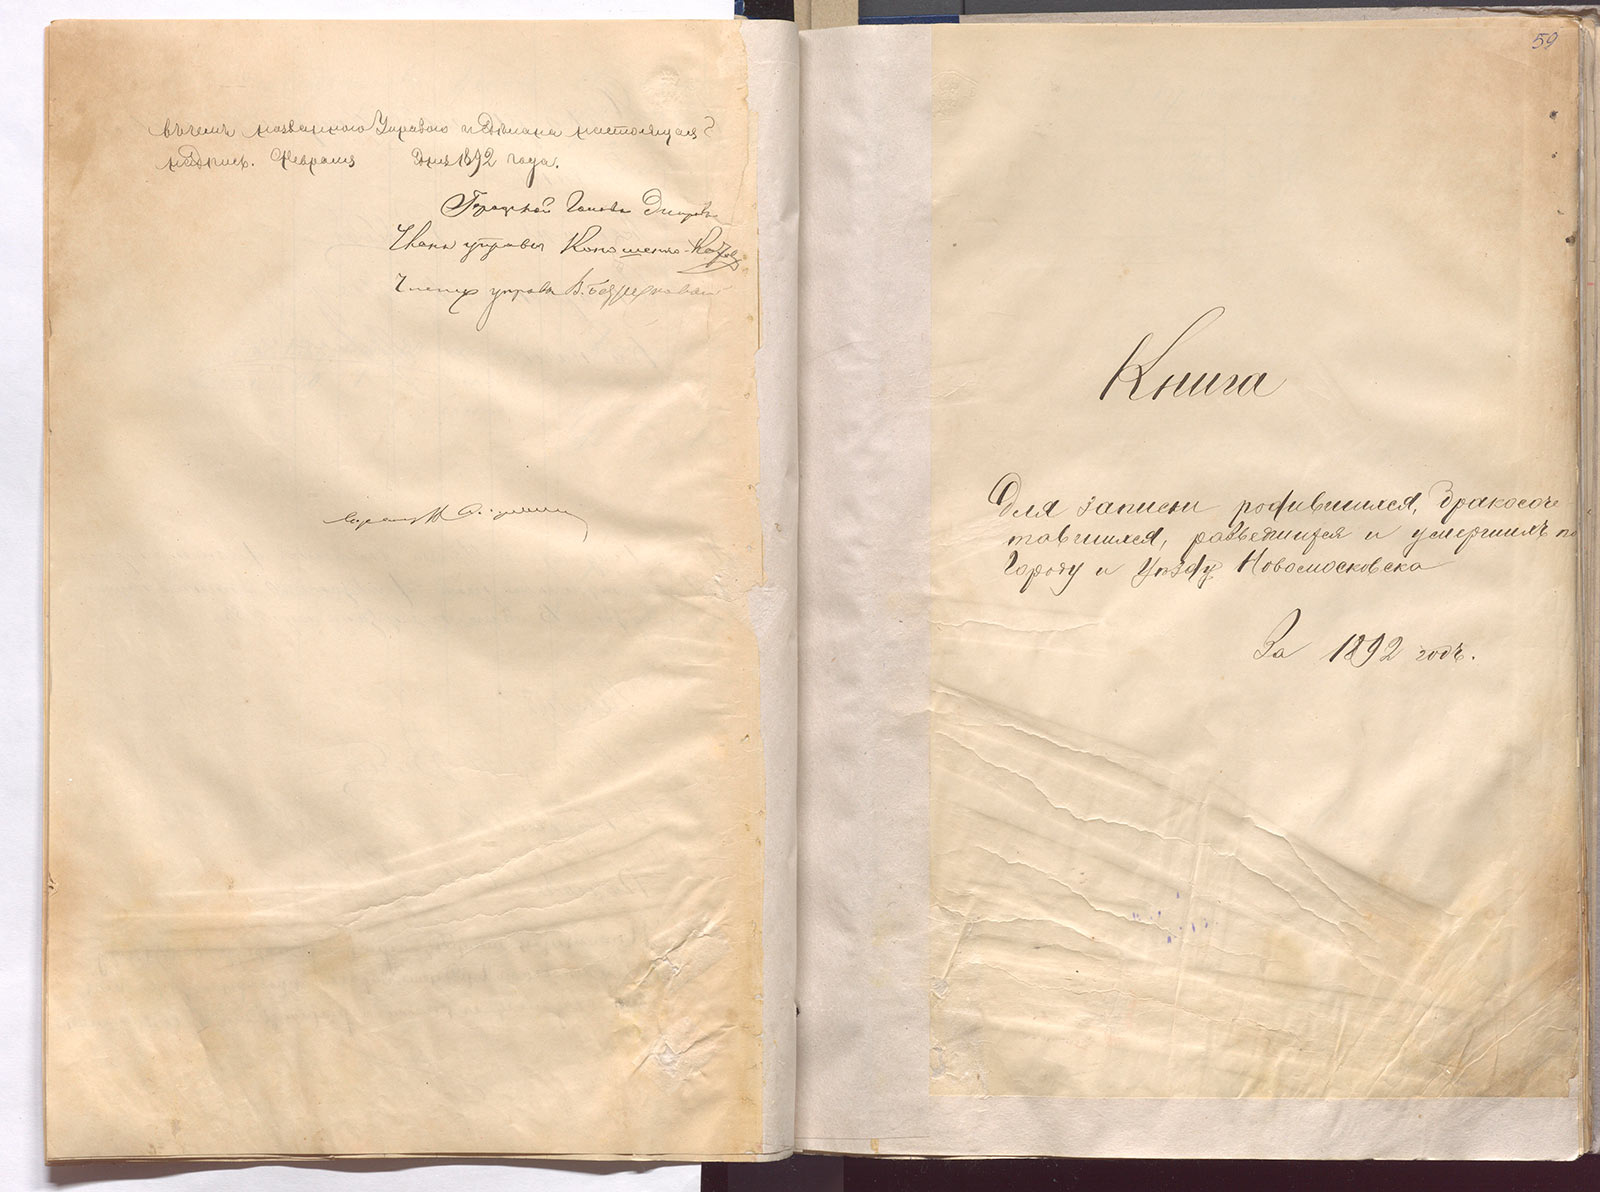 въ чемъ названного Управою и сдѣлана настоящая
надпись. Февраля дня 1892 года.
Городской Голова
Членъ управы
Членъ управы В.
59
Книга
Для записи родившихся, бракосоче
тавшихся, разведшихся и умершихъ по
Городу и Уѣзду Новомосковска
За 1892 годъ.